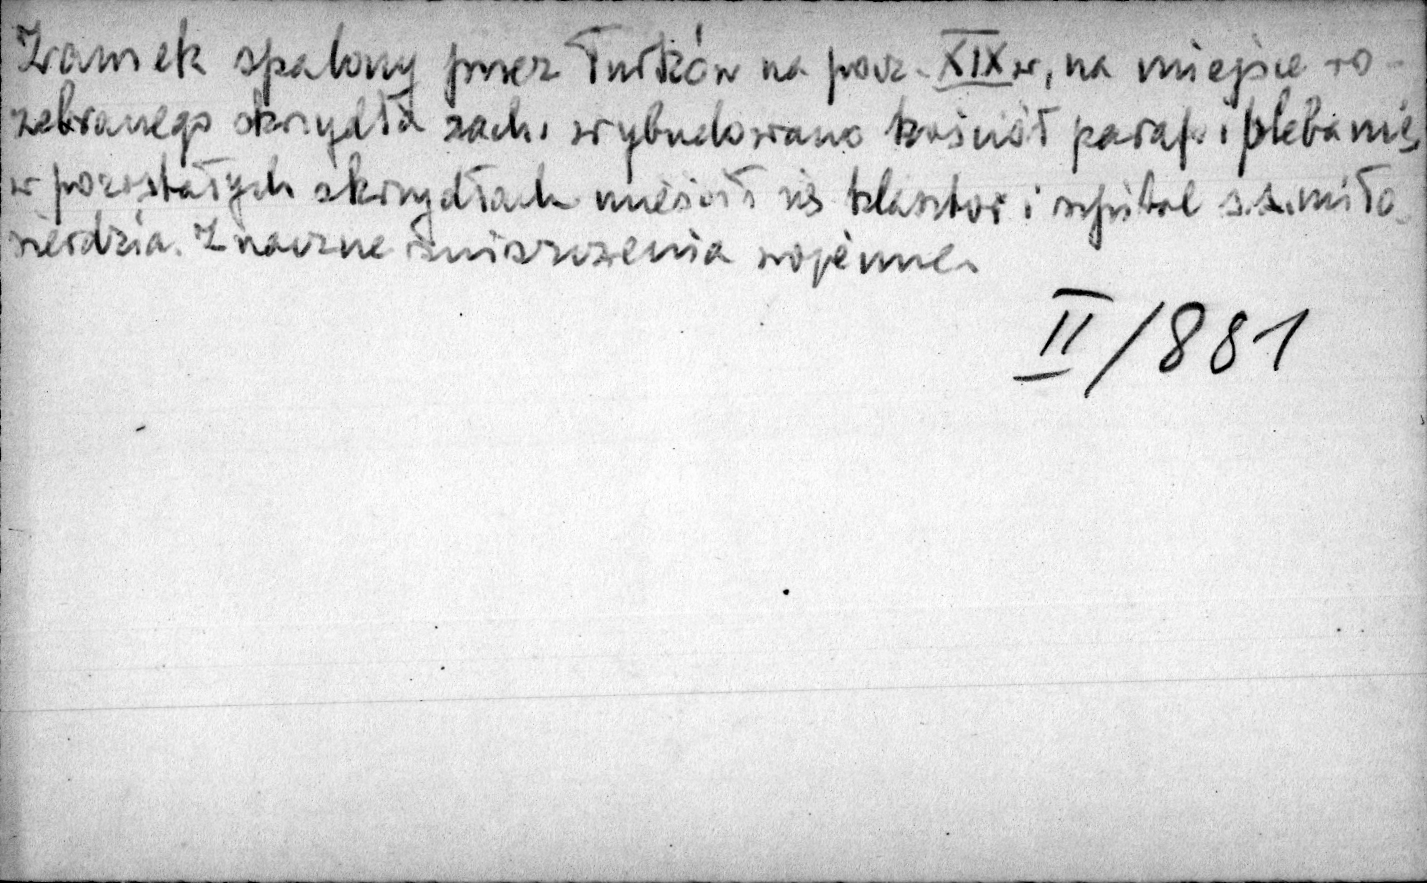 Zamek spalony przez Turków na pocz. XIX w, na miejsce ro-
zebranego skrzydła zach. wybudowano kościół paraf. i plebanię,
w pozostałych skrzydłach mieścił się klasztor i szpital s.s. miło-
sierdzia. Znaczne zniszczenia wojenne.
II/881